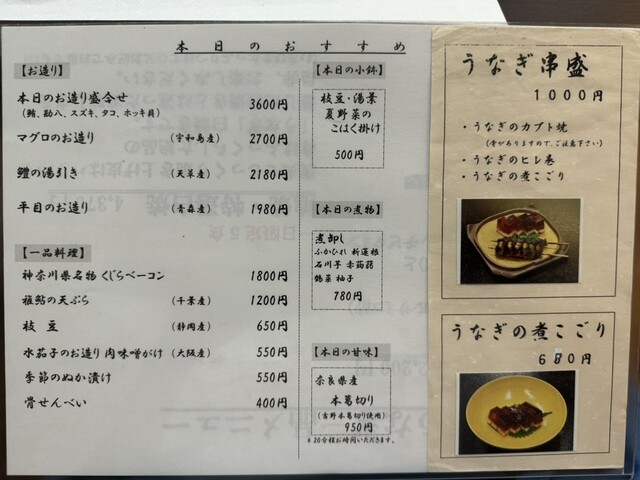 本日のおすすめ
【お造り】
本日のお造り盛合せ 3600円
(鮪、勘八、スズキ、タコ、ホッキ貝)
マグロのお造り (宇和島産) 2700円
鱧の湯引き (天草産) 2180円
平目のお造り (青森産) 1980円
【一品料理】
神奈川県名物 くじらベーコン 1800円
稚鮎の天ぷら (千葉産) 1200円
枝豆 (静岡産) 650円
水茄子のお造り 肉味噌がけ (大阪産) 550円
季節のぬか漬け 550円
骨せんべい 400円
【本日の小鉢】
枝豆・湯葉
夏野菜の
こはく掛け
500円
【本日の煮物】
煮卸し
ふかひれ 新蓮根
石川芋 赤蒟蒻
鶴菜 柚子
780円
【本日の甘味】
奈良県産
本葛切り
(吉野本葛切り使用)
950円
※20分程お時間いただきます。
うなぎ串盛
1000円
・うなぎのカブト焼
(骨がありますので、ご注意下さい)
・うなぎのヒレ巻
・うなぎの煮こごり
うなぎの煮こごり
680円